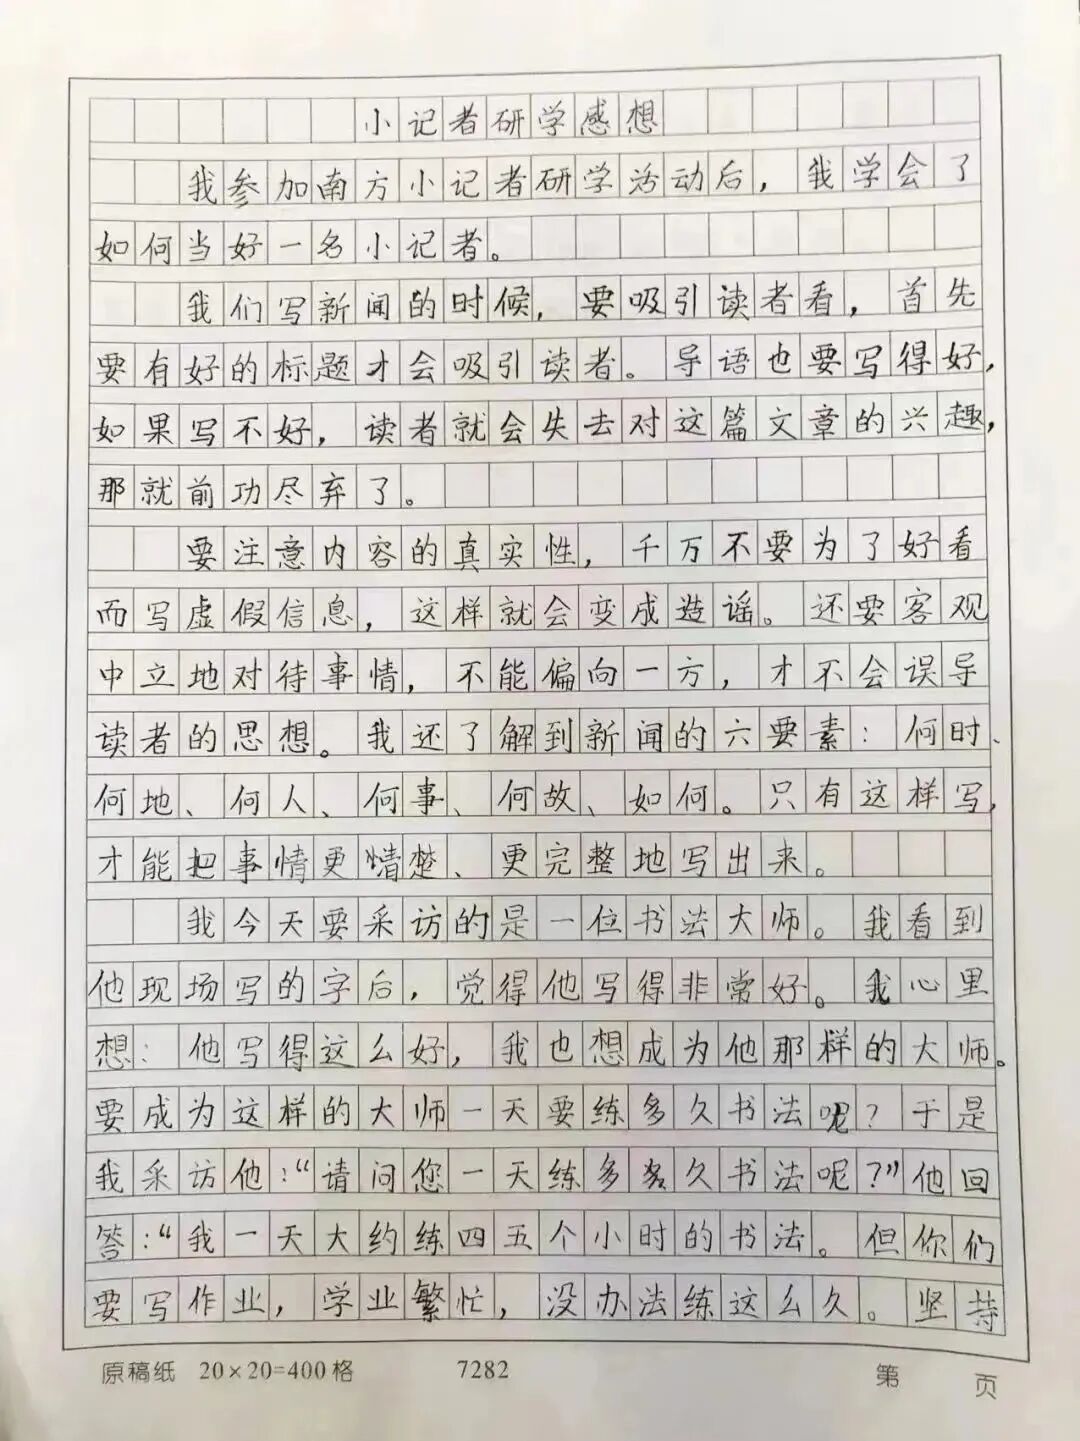 小记者研学感想
我参加南方小记者研学活动后，我学会了
如何当好一名小记者。
我们写新闻的时候，要吸引读者看，首先
要有好的标题才会吸引读者。导语也要写得好，
如果写不好，读者就会失去对这篇文章的兴趣，
那就前功尽弃了。
要注意内容的真实性，千万不要为了好看
而写虚假信息，这样就会变成造谣。还要客观
中立地对待事情，不能偏向一方，才不会误导
读者的思想。我还了解到新闻的六要素：何时、
何地、何人、何事、何故、如何。只有这样写，
才能把事情更清楚、更完整地写出来。
我今天要采访的是一位书法大师。我看到
他现场写的字后，觉得他写得非常好。我心里
想：他写得这么好，我也想成为他那样的大师。
要成为这样的大师一天要练多久书法呢？于是
我采访他：“请问您一天练多多久书法呢？”他回
答：“我一天大约练四五个小时的书法。但你们
要写作业，学业繁忙，没办法练这么久。坚持
原稿纸 20×20=400格 7282 第 页